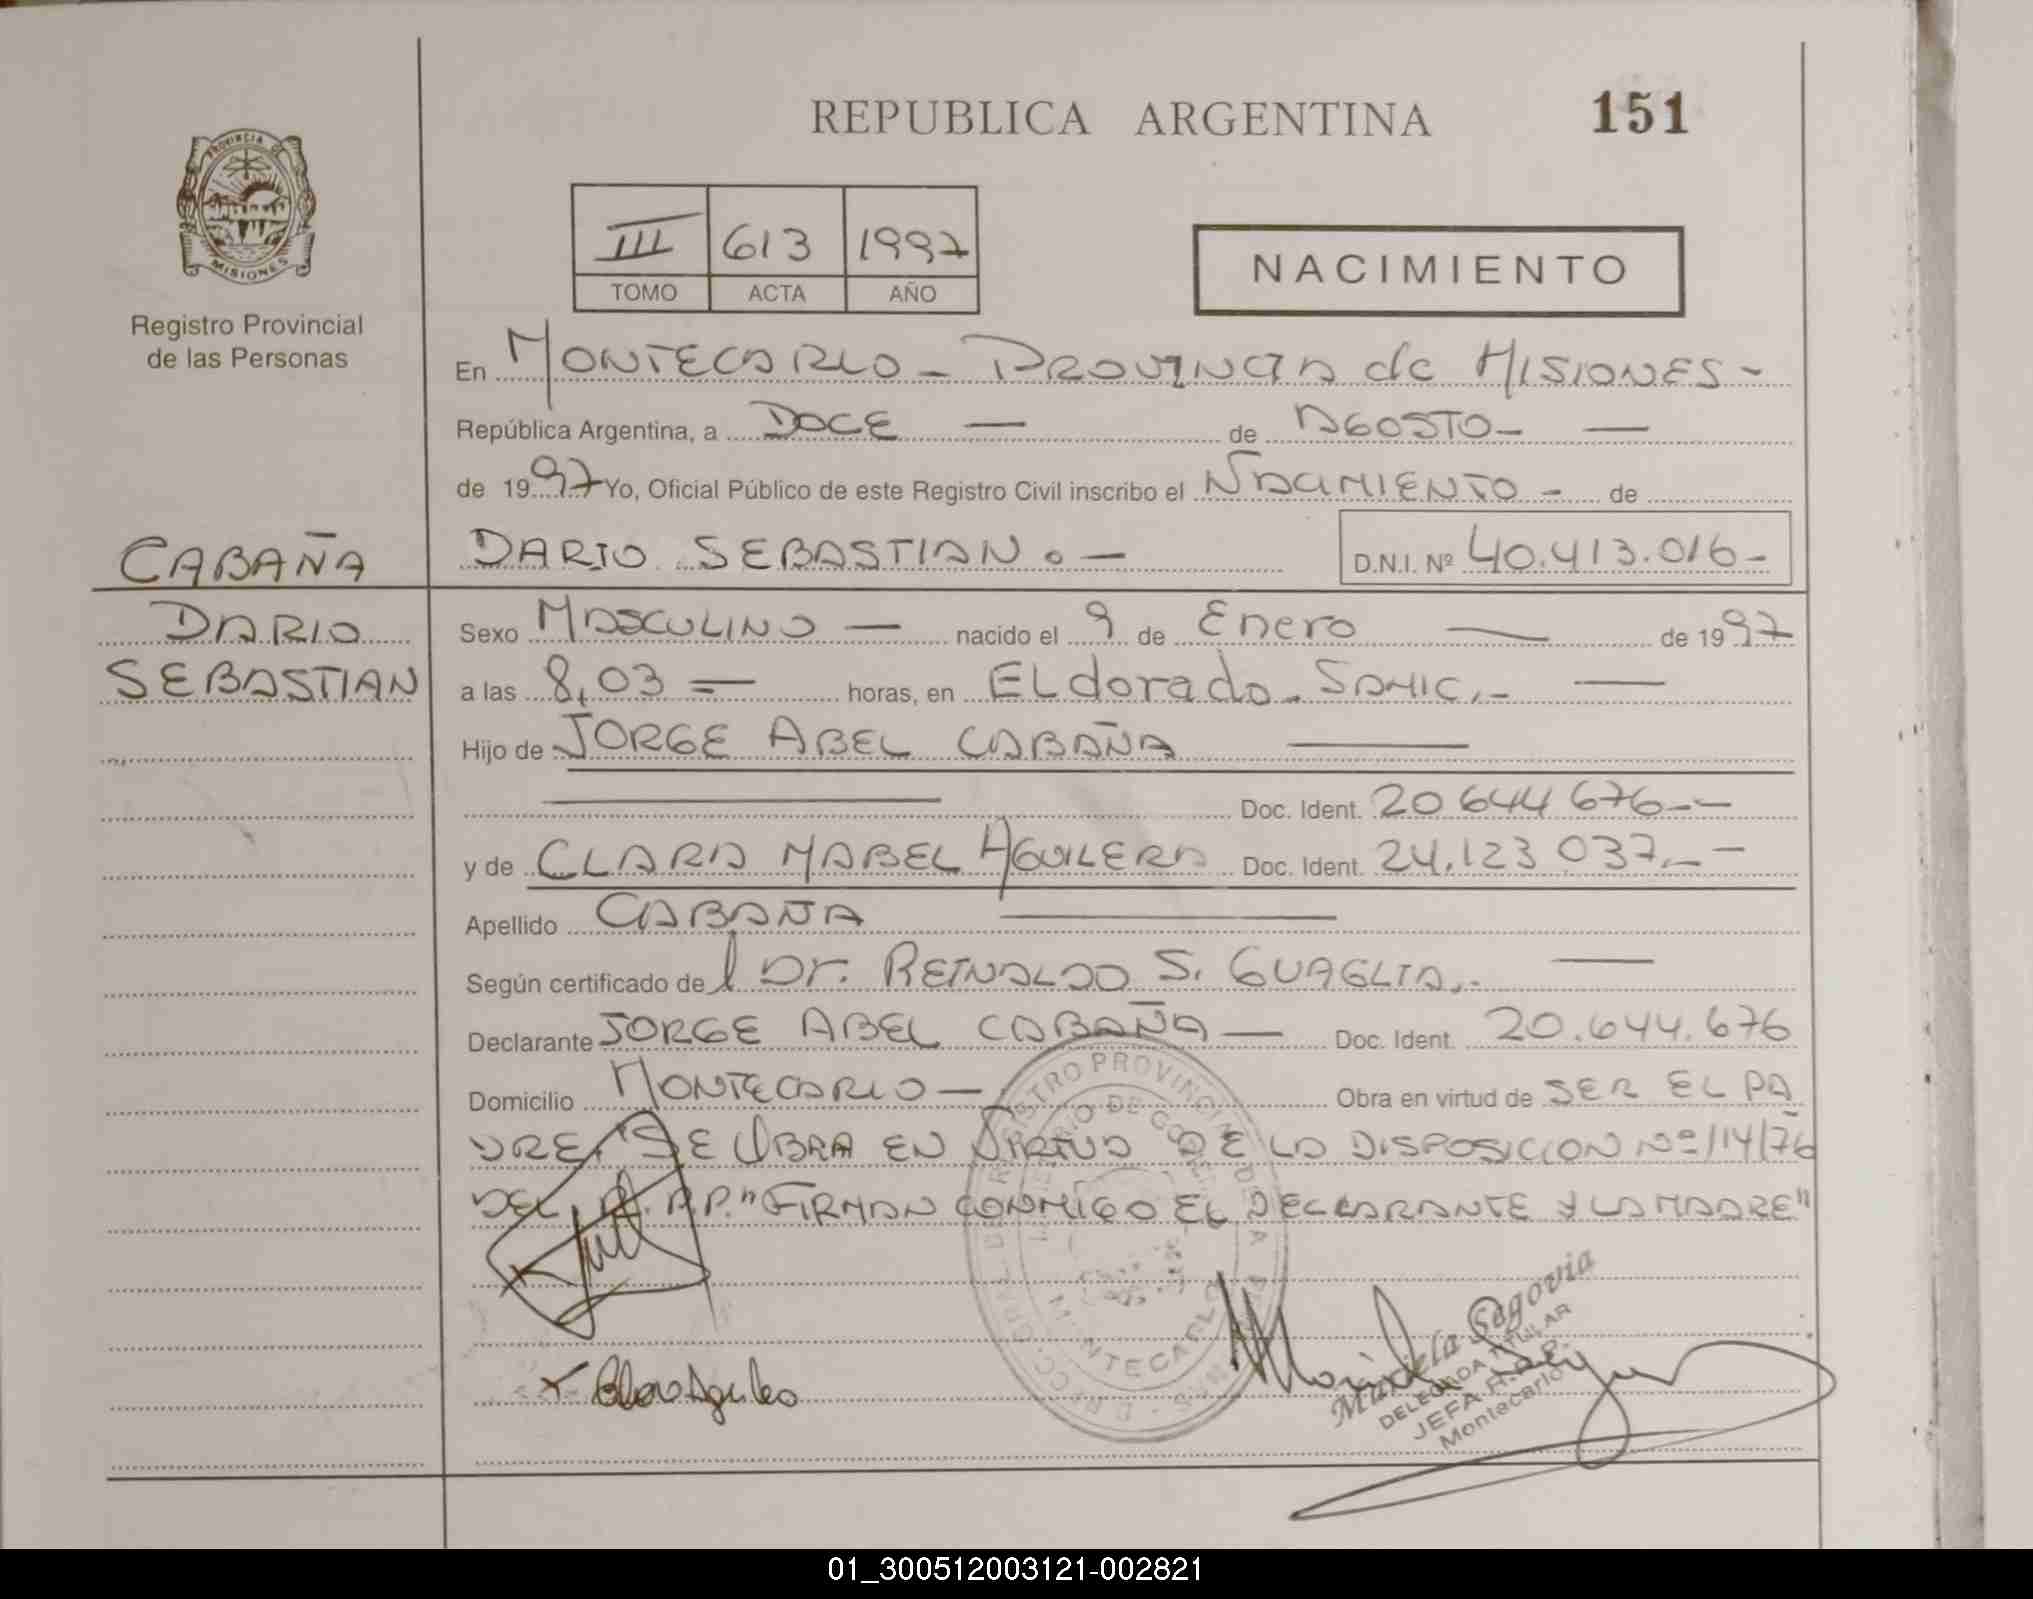 REPUBLICA ARGENTINA
151
PROVINCIA DE
MISIONES
Registro Provincial
de las Personas
III 613 1997
TOMO ACTA AÑO
NACIMIENTO
En MONTECARLO - PROVINCIA de MISIONES -
República Argentina, a DOCE — de AGOSTO - —
de 1997 Yo, Oficial Público de este Registro Civil inscribo el NACIMIENTO - de
CABAÑA
DARIO SEBASTIAN. — D.N.I. Nº 40.413.016-
DARIO
SEBASTIAN
Sexo MASCULINO — nacido el 9 de Enero — de 1997
a las 8,03 = horas, en ELdorado. SAMIC.- —
Hijo de JORGE ABEL CABAÑA —
— Doc. Ident. 20 644 676-—
y de CLARA MABEL AGUILERA Doc. Ident. 24.123 037.—-
Apellido CABAÑA —
Según certificado del Dr. REINALDO S. GUAGLIA.- —
Declarante JORGE ABEL CABAÑA — Doc. Ident. 20.644.676
Domicilio MONTECARLO — Obra en virtud de SER EL PA
DRE. "SE OBRA EN VIRTUD DE LA DISPOSICION Nº 114/76
DEL R.P.P." FIRMAN CONMIGO EL DECLARANTE Y LA MADRE"
REGISTRO PROVINCIAL DE LAS
MONTECARLO
Clara Aguilera
Mariela Segovia
DELEGADA TITULAR
JEFA R.P.P.
Montecarlo
01_300512003121-002821